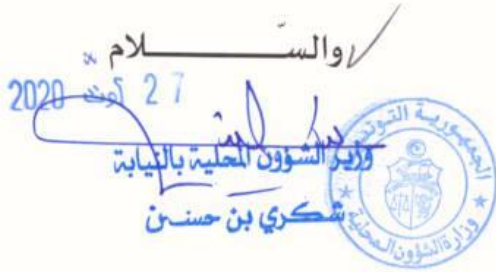 والسّـــــــــلام
27 أوت 2020
وزير الشؤون المحلية بالنيابة
شكري بن حســن
الجمهورية التونسية
وزارة الشؤون المحلية